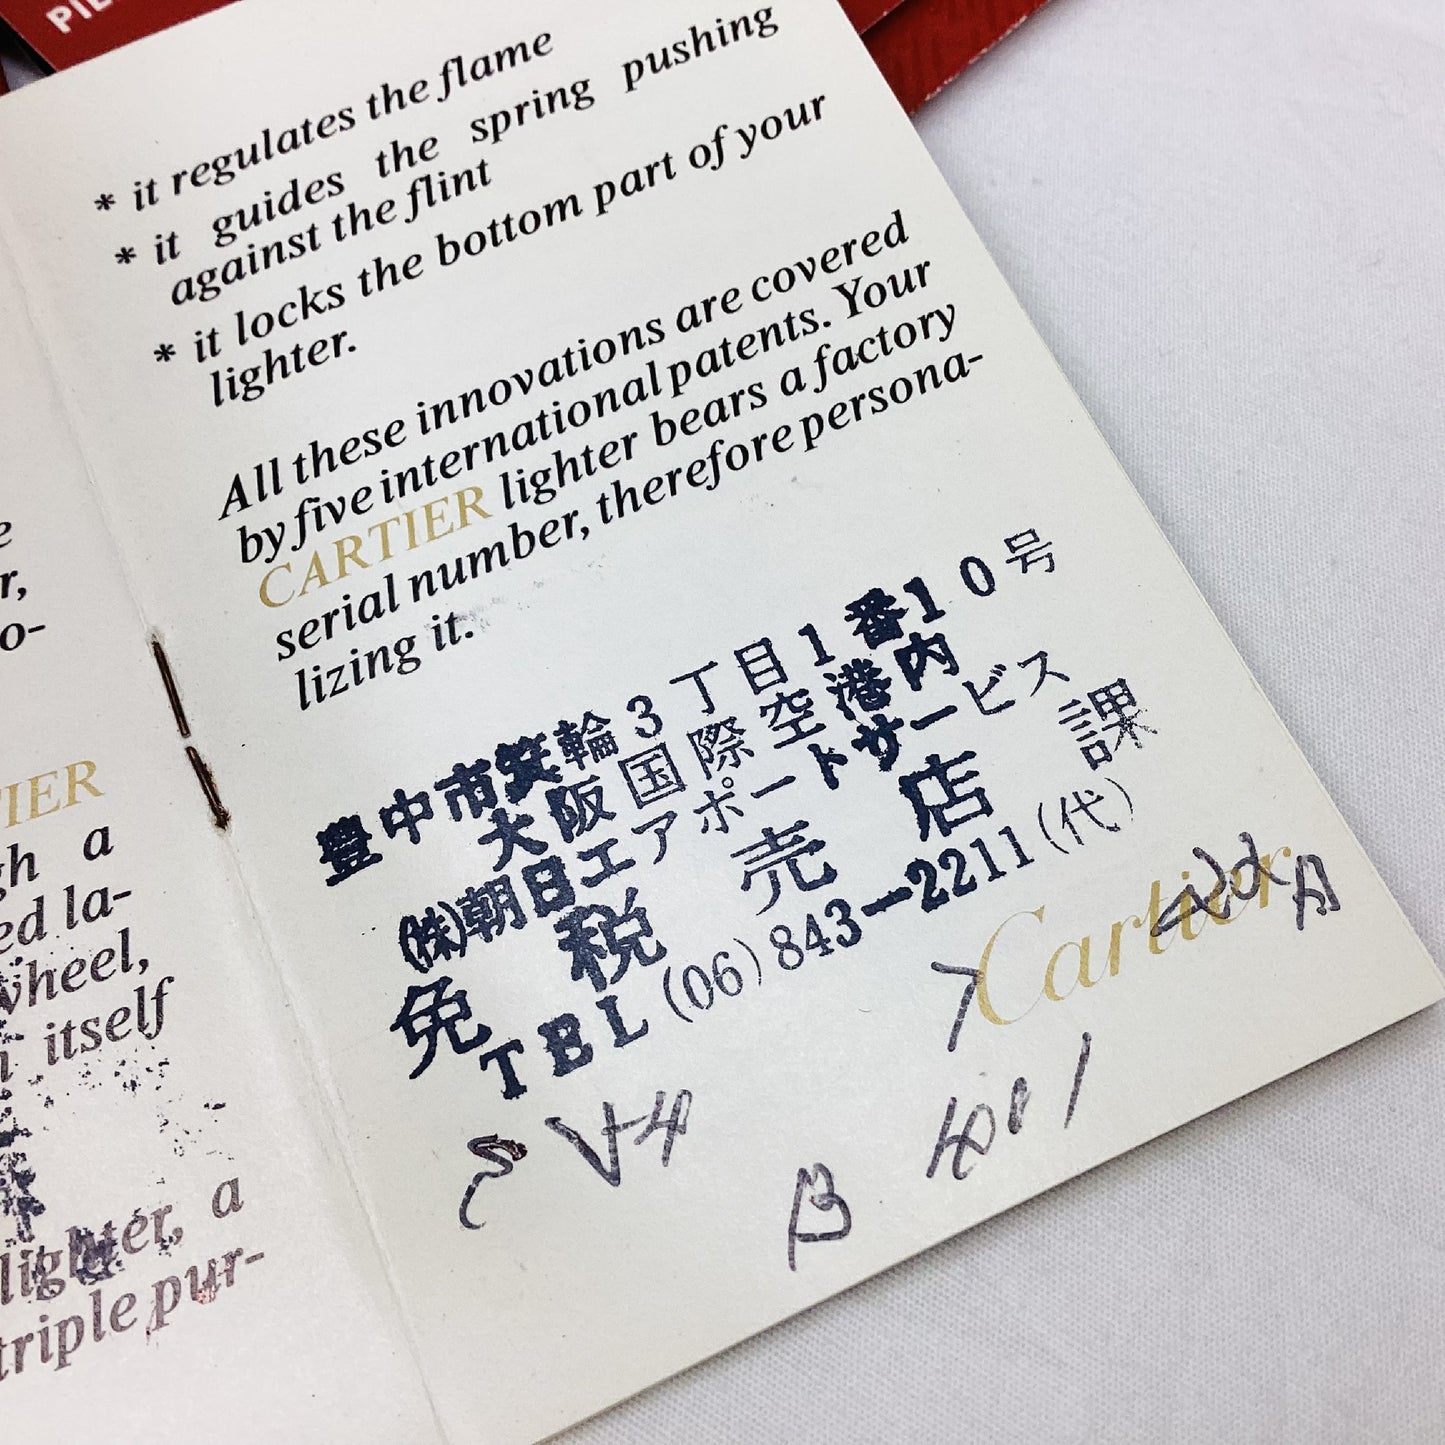 PIE
* it regulates the flame
* it guides the spring pushing
against the flint
* it locks the bottom part of your
lighter.
All these innovations are covered
by five international patents. Your
CARTIER lighter bears a factory
serial number, therefore persona-
lizing it.
豊中市箕輪3丁目1番10号
大阪国際空港内
(株)朝日エアポートサービス
免税売店課
TEL(06)843-2211(代)
Cartier
e
r,
o-
TIER
gh a
ed la-
wheel,
n itself
lighter, a
triple pur-